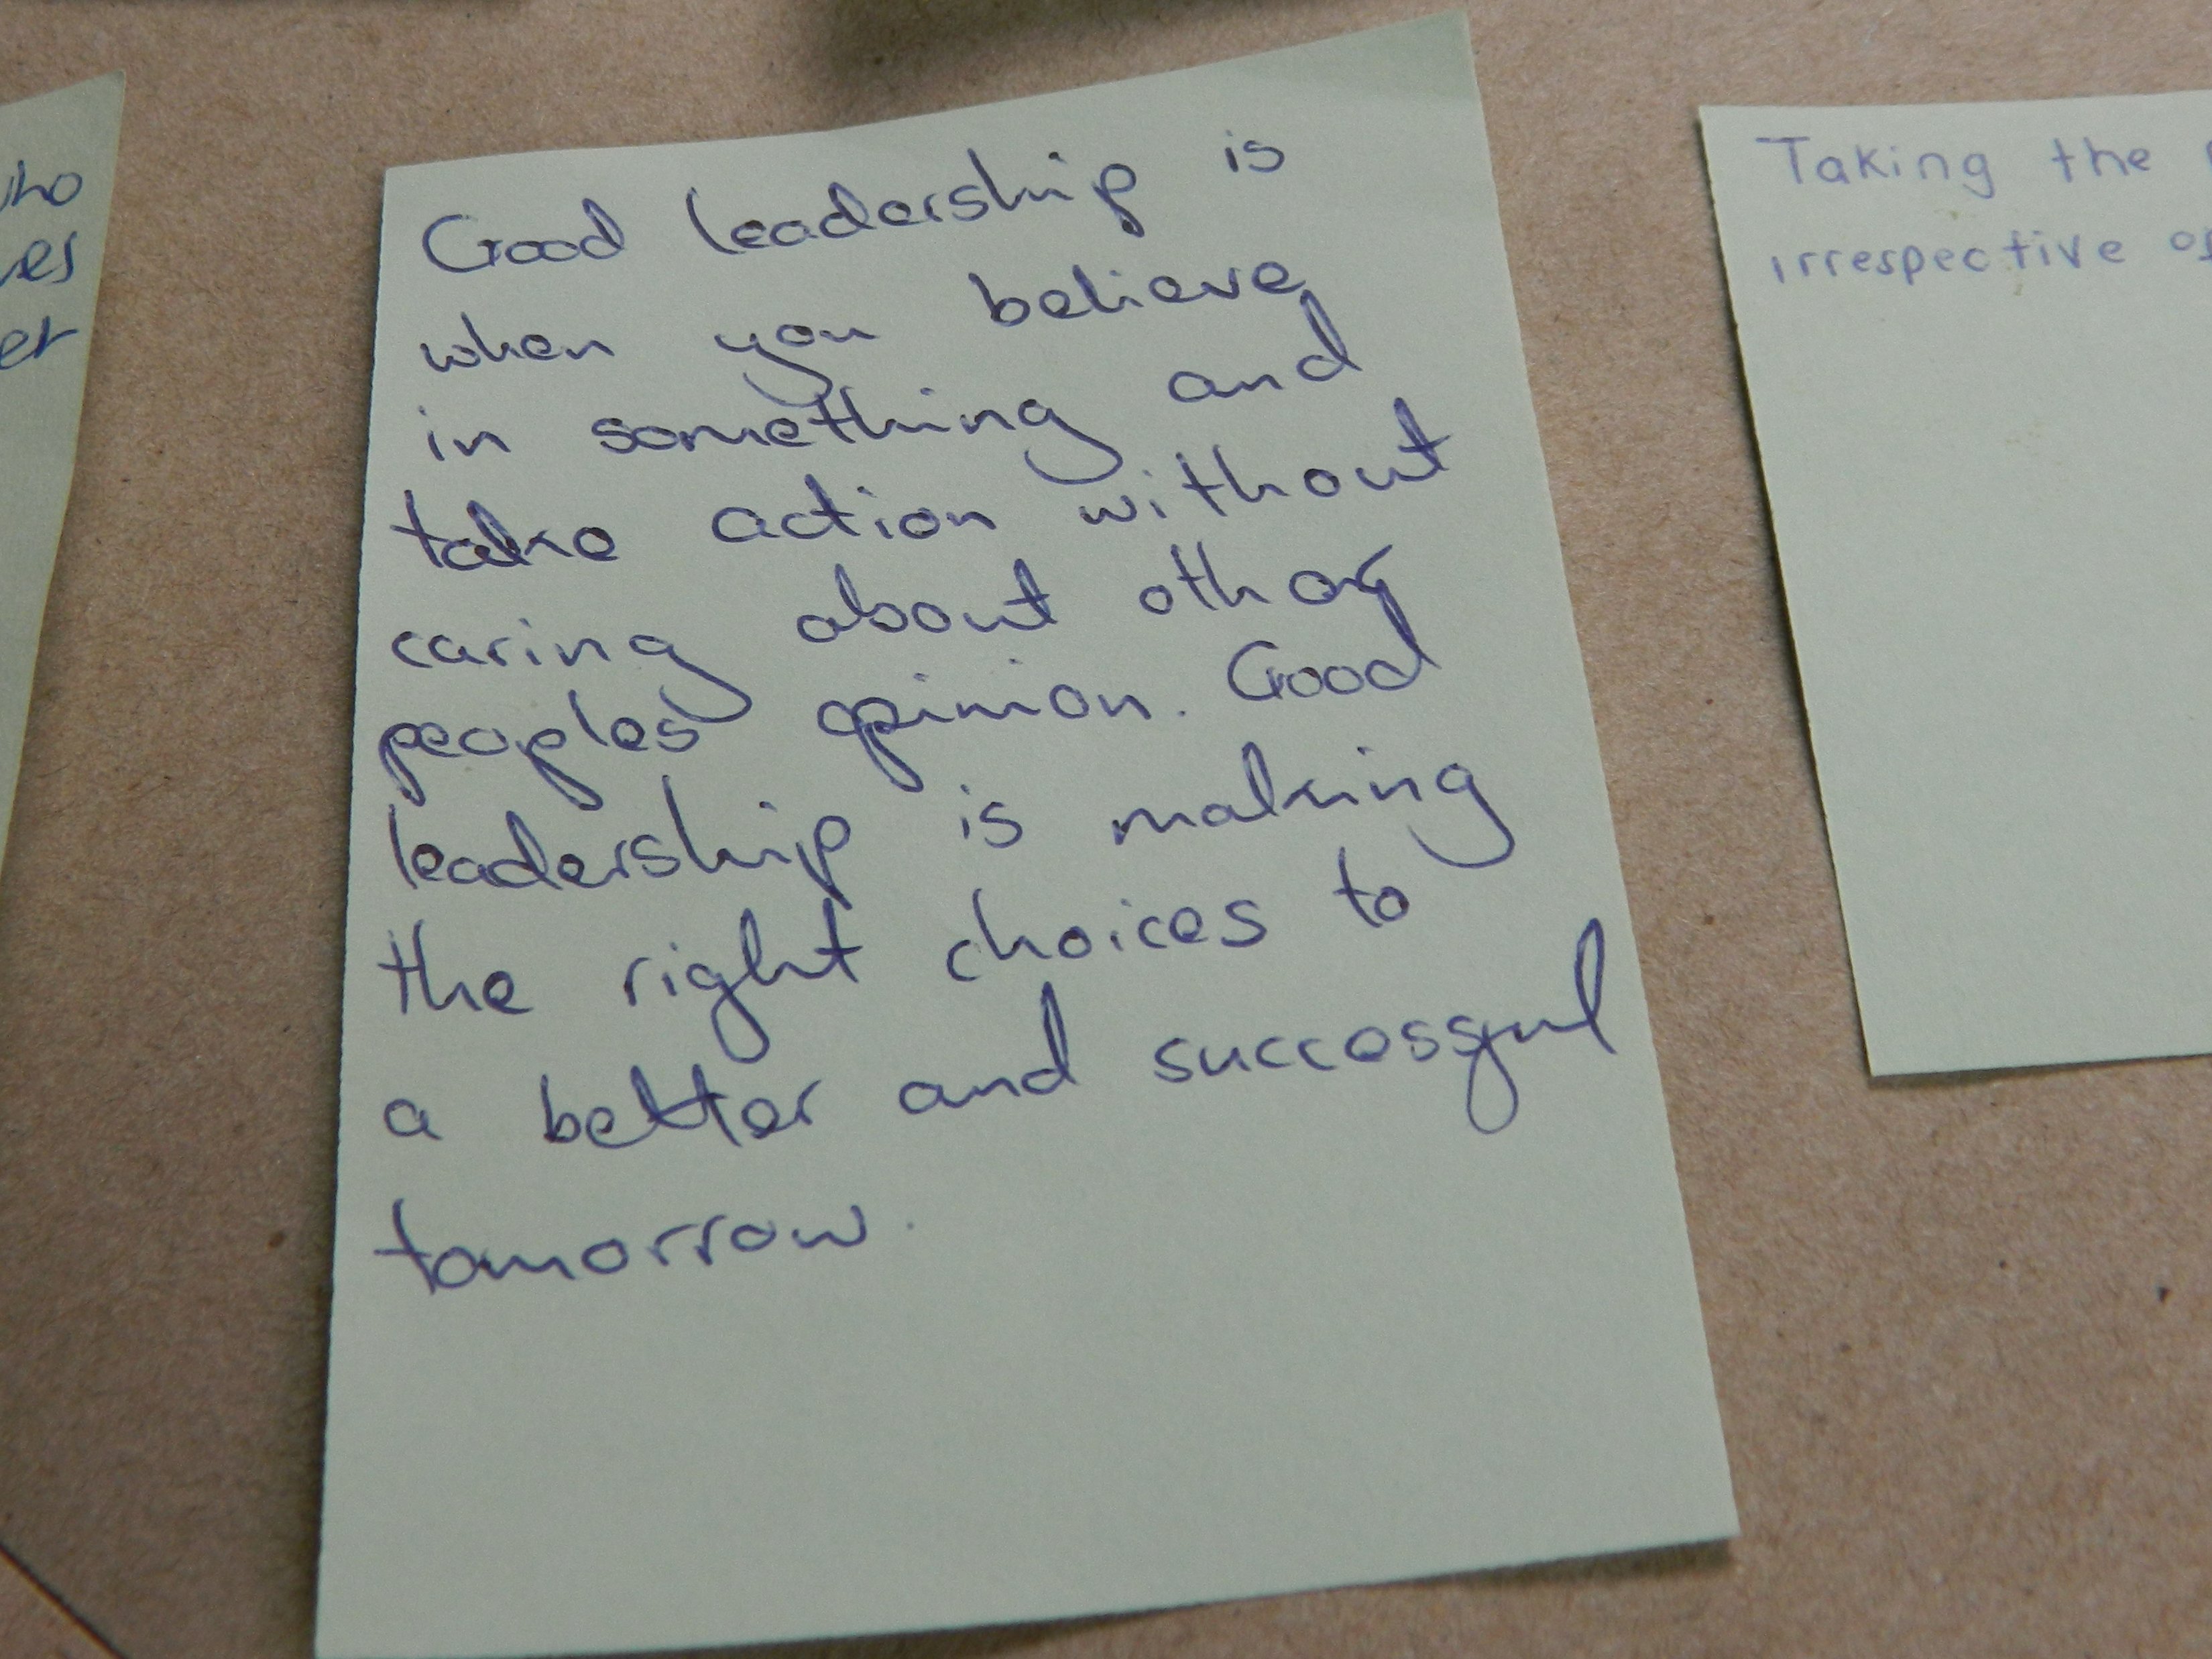 Good leadership is
when you believe
in something and
take action without
caring about other
peoples opinion. Good
leadership is making
the right choices to
a better and successful
tomorrow.
Taking the
irrespective of